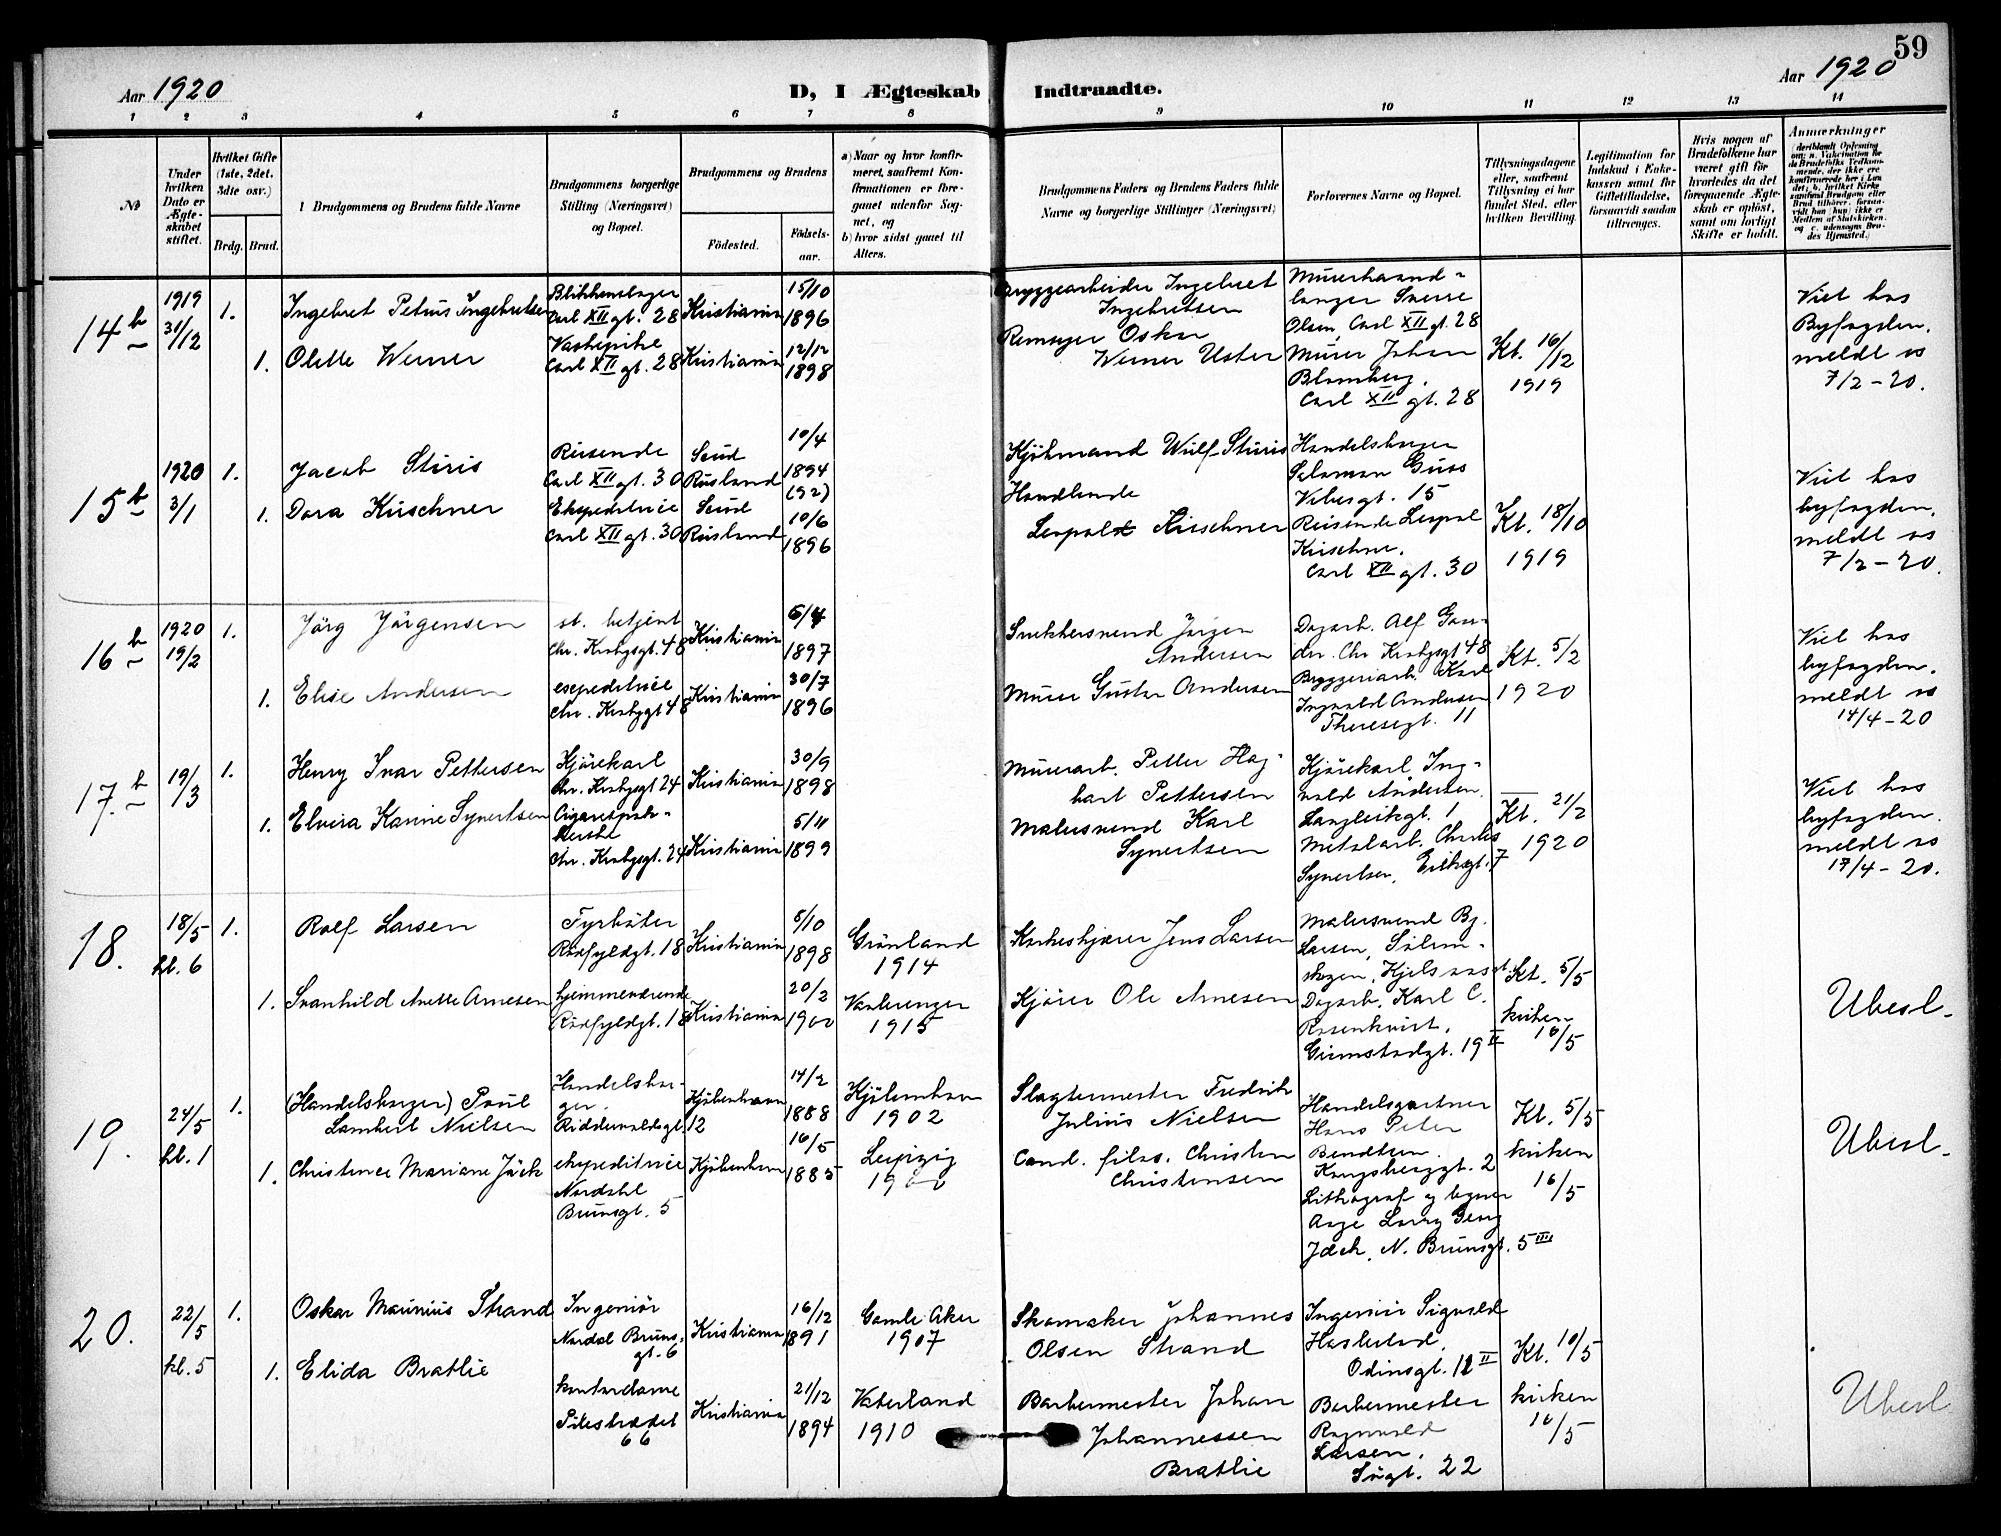 59
Aar 1920
D, I Ægteskab Indtraadte.
Aar 1920
1 2 3 4 5 6 7 8 9 10 11 12 13 14
№
Under hvilken Dato er Ægteskabet stiftet.
Hvilket Gifte (1ste, 2det, 3dte osv.)
Brdg. Brud.
Brudgommens og Brudens fulde Navne
Brudgommens borgerlige Stilling (Næringsvei) og Bopæl.
Brudgommens og Brudens
Fødested.
Fødselsaar.
a) Naar og hvor konfirmeret, saafremt Konfirmationen er foregaaet udenfor Sognet, og
b) hvor sidst gaaet til Alters.
Brudgommens Faders og Brudens Faders fulde Navne og borgerlige Stillinger (Næringsvei)
Forlovernes Navne og Bopæl.
Tillysningsdagene eller, saafremt Tillysning ei har fundet Sted, efter hvilken Bevilling.
Legitimation for Indskud i Enkekassen samt for Giftetilladelse, forsaavidt saadan tiltrænges.
Hvis nogen af Brudefolkene har været gift før hvorledes da det foregaaende Ægteskab er opløst, samt om lovligt Skifte er holdt.
Anmærkninger
14 b
1919
31/12
1.
Ingebret Petrus Ingebretsen
Blikkenslager
Carl XII gt. 28
Kristiania
15/10
1896
Bryggearbeider Ingebret
Ingebretsen
Murerhaand-
langer Sverre
Olsen, Carl XII gt. 28
1.
Olette Werner
Carl XII gt. 28
Kristiania
12/12
1898
Oskar
Werner
Murer Johan
Blomberg,
Carl XII gt. 28
Kt. 16/12
1919
Viet hos
Byfogden,
meldt os
7/2-20.
15 b
1920
3/1
1.
Jacob Stiris
Reisende
Carl XII gt. 30
Rusland
10/4
1894
(92)
Kjøbmand Wulf Stiris
Salomon
Vibesgt. 15
1.
Dora Kirschner
Ekspeditrice
Carl XII gt. 30
Rusland
10/6
1896
Handlende
Leopold Kirschner
Reisende Leopol
Kirschner,
Carl XII gt. 30
Kt. 18/10
1919
Viet hos
byfogden,
meldt os
7/2-20.
16 b
1920
19/2
1.
Jørg Jørgensen
st. betjent
Chr. Krohgsgt. 48
Kristiania
5/4
1897
Snekkersvend Jørgen
Andersen
Dagarb. Alf
Chr Krohgsgt 48
1.
Elise Andersen
expeditrice
Chr. Krohgsgt 48
Kristiania
30/7
1896
Murer Gustav Andersen
Bryggeriarb. Karl
Ingvald Andersen
Theresegt. 11
Kt. 5/2
1920
Viet hos
byfogden.
meldt os
14/4-20
17. b
19/3
1.
Henry Ivar Pettersen
Kjørekarl
Chr. Krohgsgt 24
Kristiania
30/9
1898
Murerarb. Petter Hag-
bart Pettersen
Kjørekarl Ing-
vald Andersen,
Langleiksgt. 1
1.
Elvira Karine Synertsen
Chr. Krohgsgt. 24
Kristiania
5/11
1899
Malersvend Karl
Synertsen
Metalarb. Charles
Synertsen, Eiriksgt. 7
Kt. 21/2
1920
Viet hos
byfogden.
meldt os
17/4-20.
18.
18/5
kl. 6
1.
Rolf Larsen
Fyrbøter
Rødfyldgt. 18
Kristiania
5/10
1898
Grønland
1914
Jens Larsen
Malersvend Bj.
Larsen,
1.
Svanhild Anette Arnesen
hjemmeværende
Rødfyldgt. 18
Kristiania
20/2
1900
Vaalerengen
1915
Kjører Ole Arnesen
Dagarb. Karl C.
Rosenkvist,
Grimstadgt. 19 II
Kt. 5/5
kirken
16/5
Ubesl.
19.
24/5
kl. 1
1.
(Handelsborger) Poul
Lambert Nielsen
Handelsbor-
ger.
Riddervoldsgt. 12
Kjøbenhavn
14/2
1888
Kjøbenhavn
1902
Slagtermester Fredrik
Julius Nielsen
Handelsgartner
Hans Peter
Bendtsen.
Kongsberggt. 2
1.
Christence Mariane Jäck
ekspeditrice
Nordahl
Brunsgt. 5
Kjøbenhavn
16/5
1885
Leipzig
1900
Cand. filos. Christen
Christensen
Lithograf og tegner
Aage Georg
Jäck, N. Brunsgt. 5 III
Kt. 5/5
kirken
16/5
Ubesl.
20.
22/5
kl. 5
1.
Oskar Maurius Strand
Ingeniør
Nordal Bruns
gt. 6
Kristiania
16/12
1891
Gamle Aker
1907
Skomaker Johannes
Olsen Strand
Ingeniør Sigvald
Odinsgt. 12 II
1.
Elida Bratlie
kontordame
Pilestrædet
66
Kristiania
21/12
1894
Vaterland
1910
Barbermester Johan
Johannessen
Bratlie
Barbermester
Ragnvald
Larsen,
22
Kt. 10/5
kirken
16/5
Ubesl.